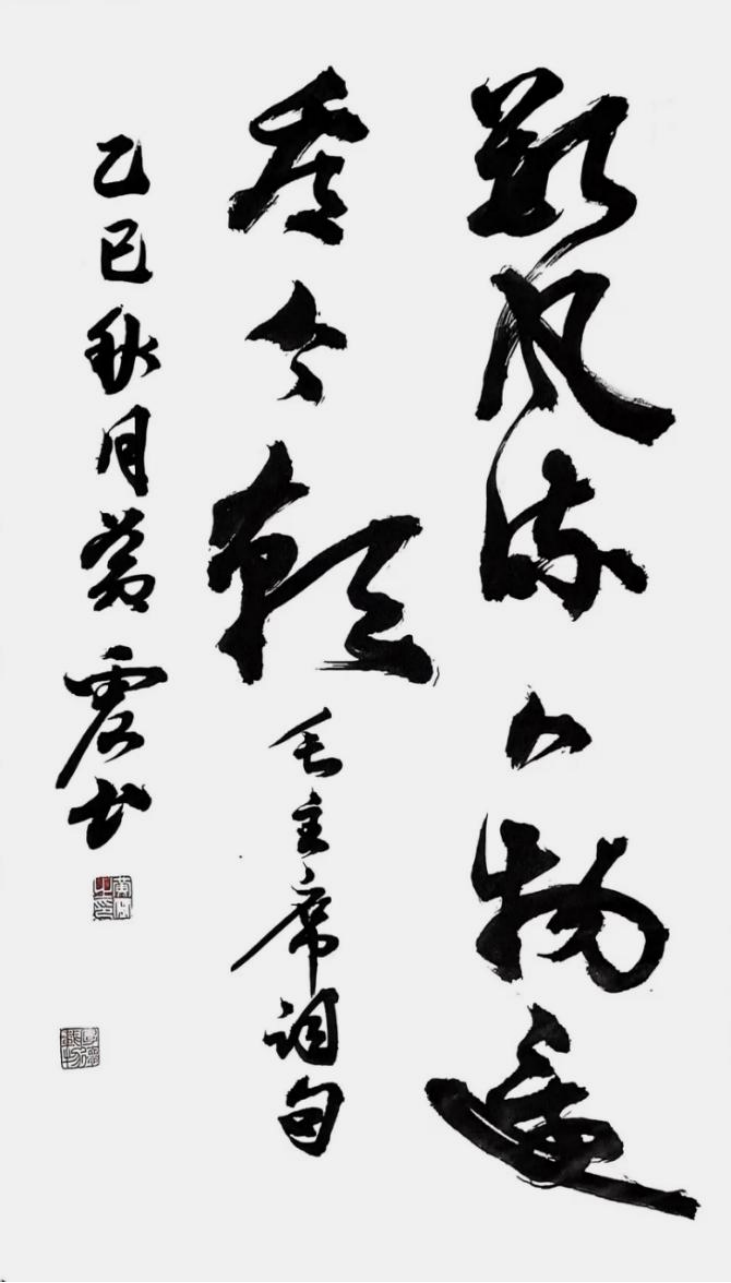 數风流人物還
看今朝 毛主席词句
乙巳秋月黄震书